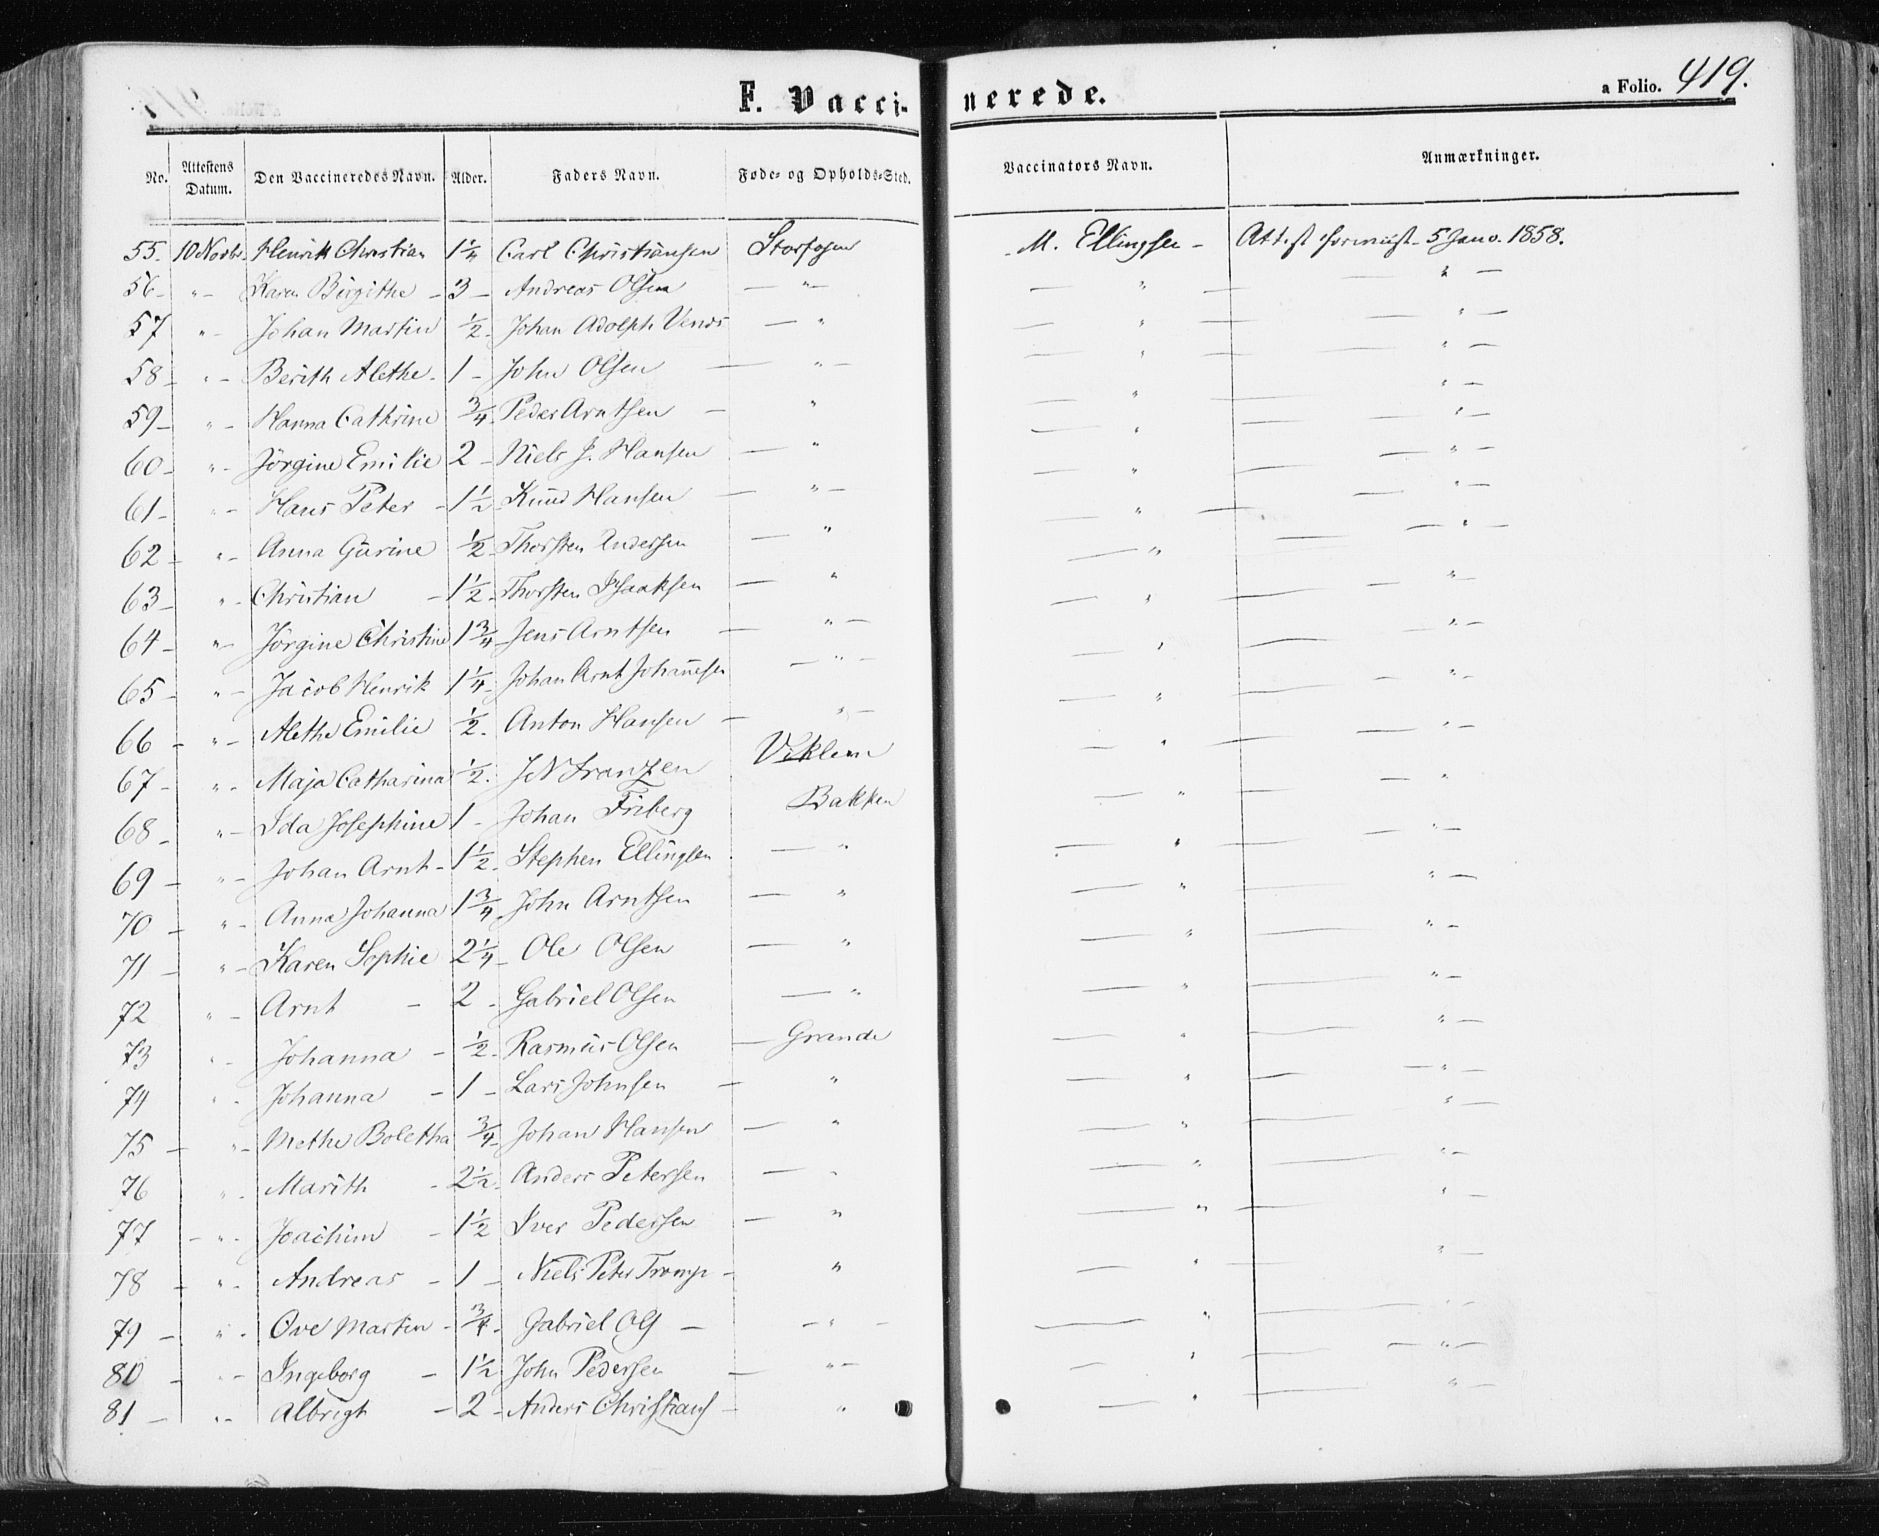 F. Vaccinerede.
a Folio. 419.
No. Attestens Datum. Den Vaccineredes Navn. Alder. Faders Navn. Føde- og Opholds-Sted. Vaccinators Navn. Anmærkninger.
55. 10 Novbr. Henrik Christian 1 1/4 Carl Christiansen Storfosen M. Ellingsen - Attest 5 Janv. 1858.
56 - " - Karen Birgithe - 3 - Andreas Olsen — " — — " — — " —
57 " - Johan Martin 1/2 - Johan Adolph — " — " — — " —
58 - " - Berith Alethe - 1 - John Olsen — " — — " — — " —
59 - " - Hanna Cathrine 3/4 - Peder Arntsen — " — " — — " —
60 - " - Jørgine Emilie 2 - Niels J. Hansen — " — " — — " —
61 - " - Hans Peter - 1 1/2 - Knud Hansen — " — — " — — " —
62 - " - Anna Gurine 1/2 - Thorsten Andersen — " — " — — " —
63 - " - Christian - 1 1/2 - Thorsten Isaaksen — " — " — — " —
64 - " - Jørgine Christine 1 3/4 - Jens Arntsen — " — — " — — " —
65 - " - Jacob Henrik 1 1/4 - Johan Arnt Johannesen — " — — " — — " —
66 - " - Alethe Emilie 1/2 - Anton Hansen — " — — " — — " —
67 - " - Maja Catharina 1/2 - J N Franzen Viklem — " — — " —
68 - " - Ida Josephine 1 - Johan Friberg Bakken — " — — " —
69 - " - Johan Arnt - 1 1/2 - Stephen Ellingsen — " — " — — " —
70 - " - Anna Johanna 1 3/4 - John Arntsen — " — " — — " —
71 - " - Karen Sophie 2 1/4 - Ole Olsen — " — " — — " —
72 " - Arnt - 2 - Gabriel Olsen — " — " — — " —
73 " - Johanna - 1/2 - Rasmus Olsen — Grande — " — — " —
74 " - Johanna - 1 - Lars Johnsen — " — " — — " —
75 - " - Methe Boletha 3/4 - Johan Hansen — " — " — — " —
76 " - Marith - 2 1/2 - Anders Petersen — " — " — — " —
77 - " - Joachim - 1 1/2 Iver Pedersen — " — " — — " —
78 - " - Andreas - 1 - Niels Peter Tromp - " — " — — " —
79 - " - Ove Martin - 3/4 - Gabriel Ols — — " — — " — — " —
80 - " - Ingeborg - 1 1/2 John Pedersen — " — — " — — " —
81 - " - Albrigt - 2 - Anders Christians - " — " — — " —